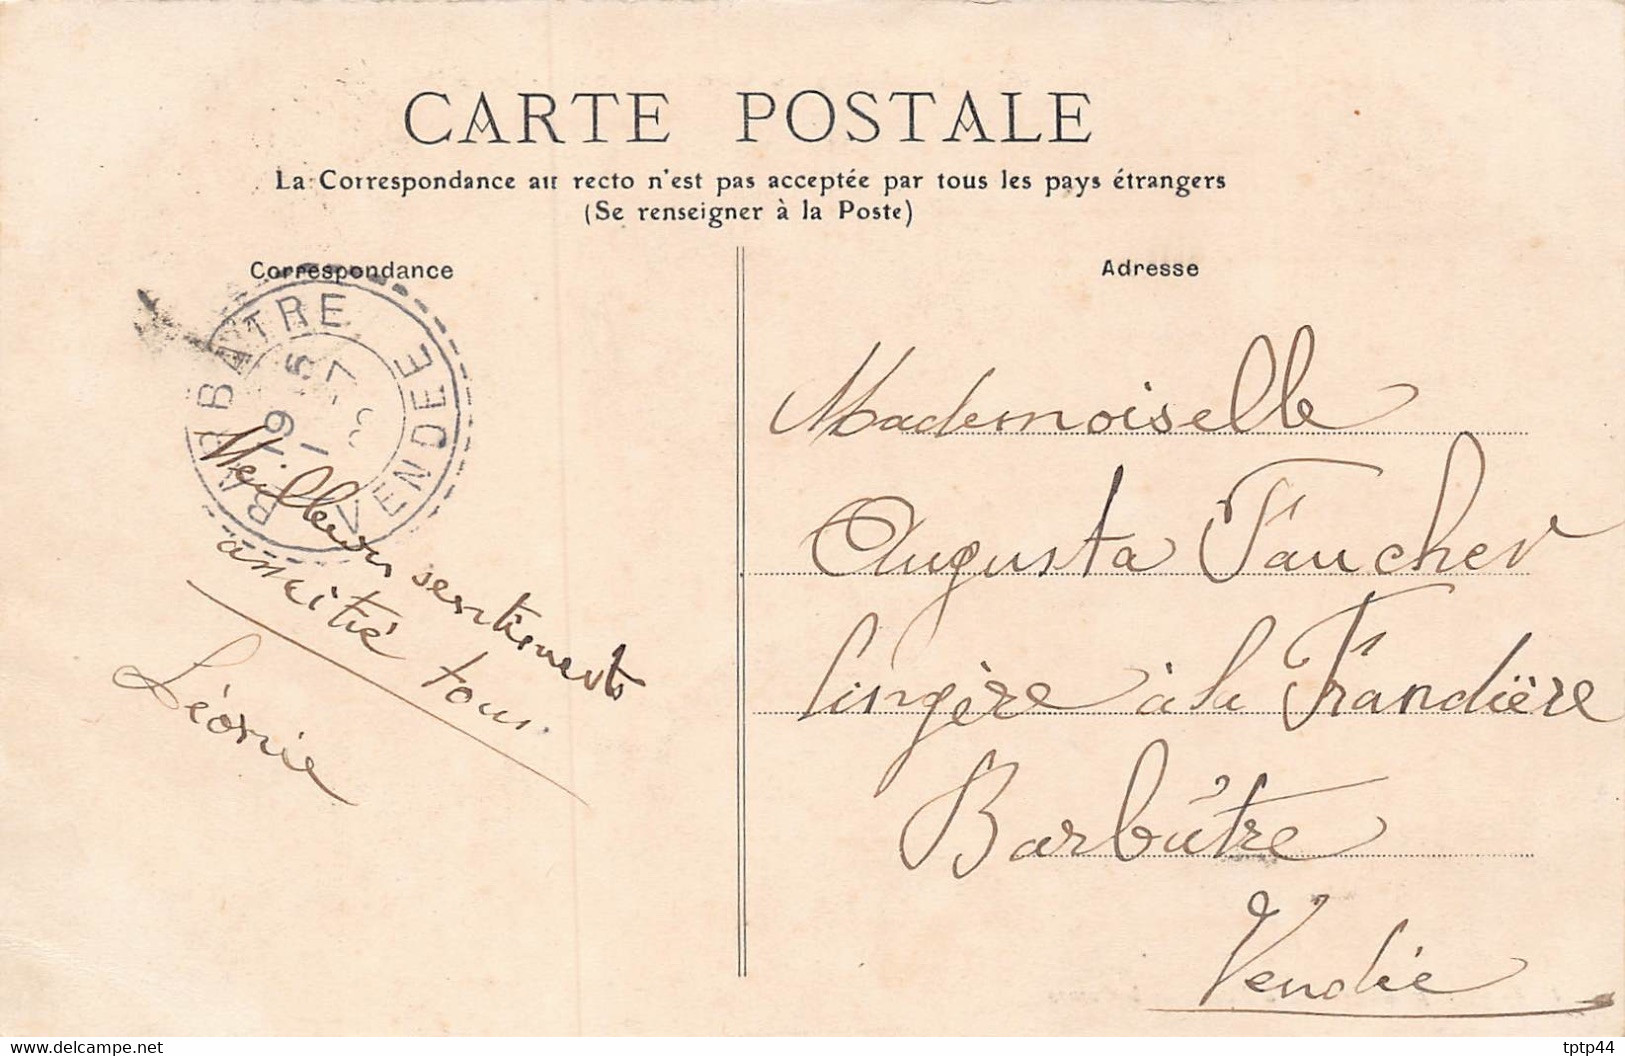 CARTE POSTALE
La Correspondance au recto n'est pas acceptée par tous les pays étrangers
(Se renseigner à la Poste)
Correspondance
BARBATRE
VENDEE
Meilleurs sentiments
amitié tous
Léonie
Adresse
Mademoiselle
Augusta Faucher
lingère à la Frandière
Barbâtre
Vendée
www.delcampe.net
tptp44